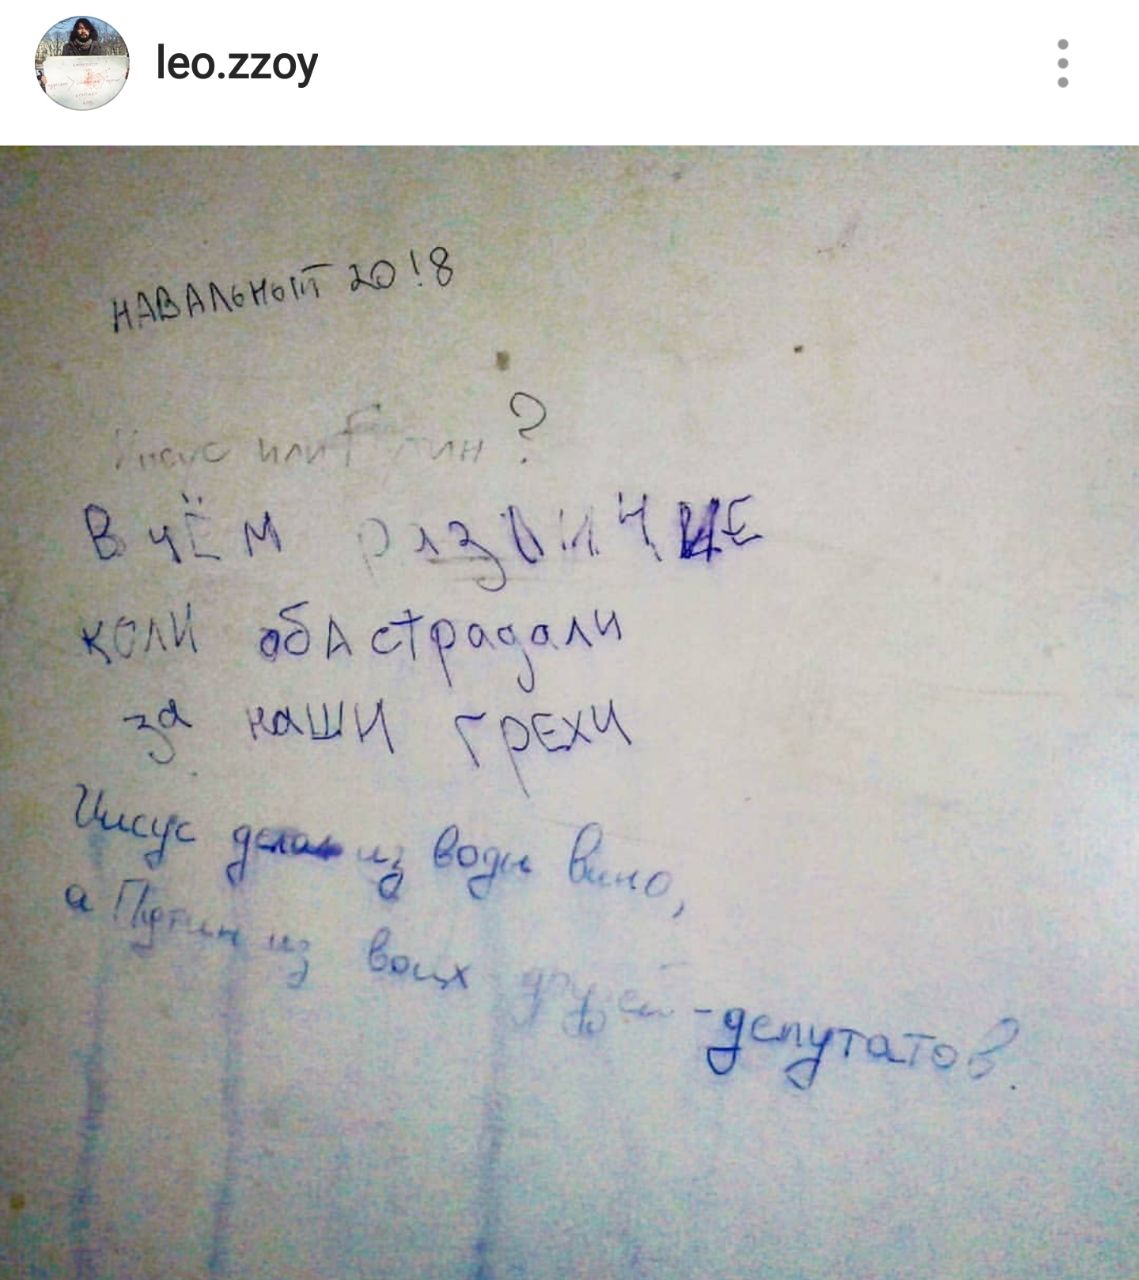 leo.zzoy
НАВАЛЬНЫЙ 20!8
Иисус или Путин ?
В ЧЁМ РАЗЛИЧИЕ
КОЛИ ОБА страдали
за НАШИ ГРЕХИ
Иисус делал из воды вино,
а Путин из воих друзей -депутатов.